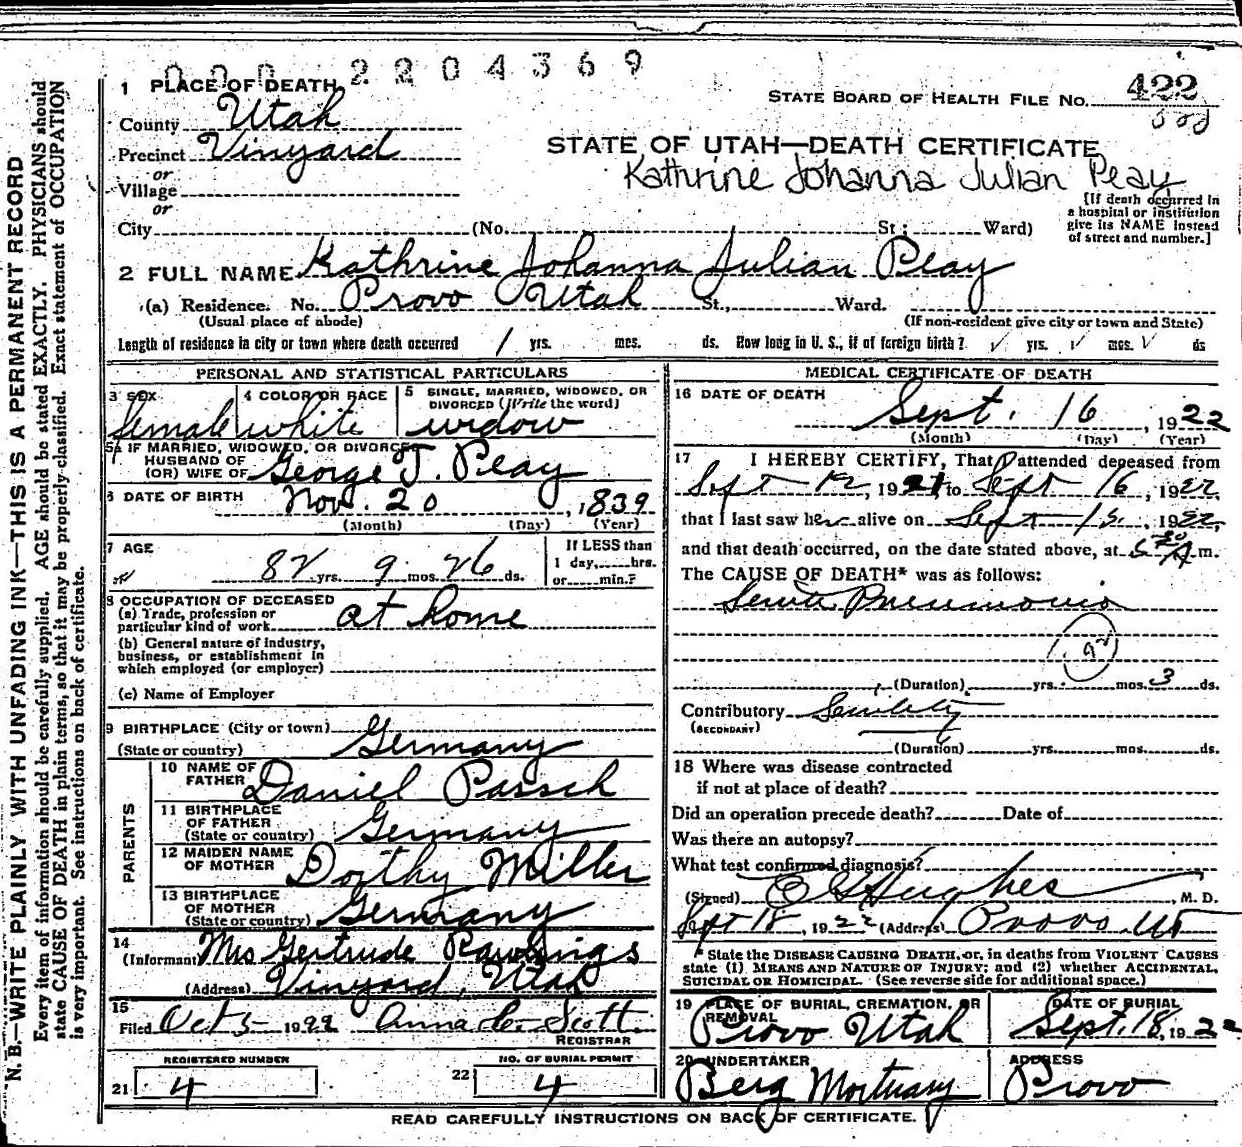 000 2204369
N. B.—WRITE PLAINLY WITH UNFADING INK—THIS IS A PERMANENT RECORD
Every item of information should be carefully supplied. AGE should be stated EXACTLY. PHYSICIANS should
state CAUSE OF DEATH in plain terms, so that it may be properly classified. Exact statement of OCCUPATION
is very important. See instructions on back of certificate.
1 PLACE OF DEATH
STATE BOARD OF HEALTH FILE No. 422
County Utah
STATE OF UTAH—DEATH CERTIFICATE
Precinct Vinyard
Kathrine Johanna Julian Peay
or
Village
or
City (No. St.; Ward)
[If death occurred in
a hospital or institution
give its NAME instead
of street and number.]
2 FULL NAME Kathrine Johanna Julian Peay
(a) Residence. No. Provo Utah St., Ward.
(Usual place of abode) (If non-resident give city or town and State)
Length of residence in city or town where death occurred 1 yrs. mos. ds. How long in U. S., if of foreign birth? yrs. mos. ds
PERSONAL AND STATISTICAL PARTICULARS
3 SEX female
4 COLOR OR RACE white
5 SINGLE, MARRIED, WIDOWED, OR
DIVORCED (Write the word)
widow
5a IF MARRIED, WIDOWED, OR DIVORCED
HUSBAND OF
(OR) WIFE OF George T. Peay
6 DATE OF BIRTH Nov. 20, 1839
(Month) (Day) (Year)
7 AGE 82 yrs. 9 mos. 26 ds.
If LESS than
1 day, hrs.
or min.?
8 OCCUPATION OF DECEASED
(a) Trade, profession or
particular kind of work at home
(b) General nature of industry,
business, or establishment in
which employed (or employer)
(c) Name of Employer
9 BIRTHPLACE (City or town)
(State or country) Germany
PARENTS
10 NAME OF
FATHER Daniel Passch
11 BIRTHPLACE
OF FATHER
(State or country) Germany
12 MAIDEN NAME
OF MOTHER Dorthy Miller
13 BIRTHPLACE
OF MOTHER
(State or country) Germany
14
(Informant) Mrs Gertrude Rawlings
(Address) Vinyard, Utah
15
Filed Oct 5 1922 Anna C. Scott
REGISTRAR
REGISTERED NUMBER
21 4
NO. OF BURIAL PERMIT
22 4
MEDICAL CERTIFICATE OF DEATH
16 DATE OF DEATH
Sept. 16, 1922
(Month) (Day) (Year)
17 I HEREBY CERTIFY, That I attended deceased from
Sept 12, 1921 to Sept 16, 1922,
that I last saw her alive on Sept 15, 1922,
and that death occurred, on the date stated above, at 5 30 A m.
The CAUSE OF DEATH* was as follows:
Pneumonia
92
(Duration) yrs. mos. 3 ds.
Contributory Senility
(SECONDARY)
(Duration) yrs. mos. ds.
18 Where was disease contracted
if not at place of death?
Did an operation precede death? Date of
Was there an autopsy?
What test confirmed diagnosis?
(Signed) Hughes, M. D.
Sept 18, 1922 (Address) Provo Ut
* State the DISEASE CAUSING DEATH, or, in deaths from VIOLENT CAUSES
state (1) MEANS AND NATURE OF INJURY; and (2) whether ACCIDENTAL,
SUICIDAL OR HOMICIDAL. (See reverse side for additional space.)
19 PLACE OF BURIAL, CREMATION, OR
REMOVAL
Provo Utah
DATE OF BURIAL
Sept. 18, 1922
20 UNDERTAKER
Berg Mortuary
ADDRESS
Provo
READ CAREFULLY INSTRUCTIONS ON BACK OF CERTIFICATE.